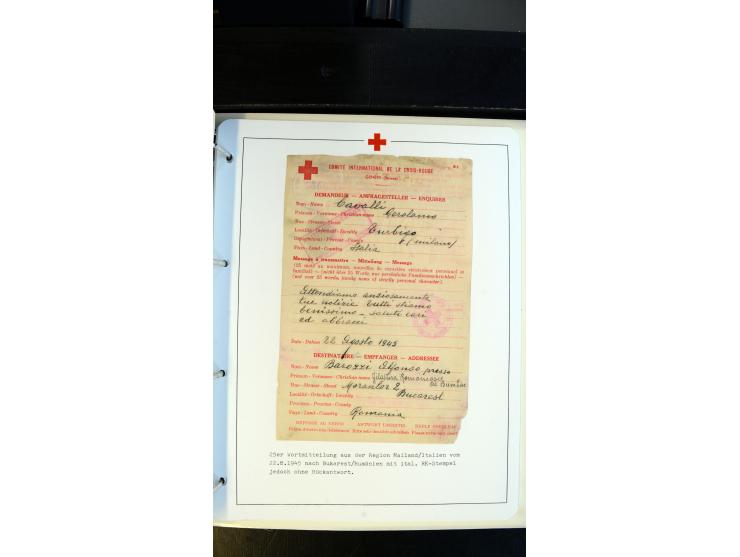 COMITÉ INTERNATIONAL DE LA CROIX-ROUGE
DEMANDEUR — ANFRAGESTELLER — ENQUIRER
Nom - Name Cavalli
Prénom - Vorname - Christian name Gerolamo
Rue - Strasse - Street
Localité - Ortschaft - Locality Turbigo
Département - Provinz - County (milano)
Pays - Land - Country Italia
Message à transmettre — Mitteilung — Message
(25 mots au maximum, nouvelles de caractère strictement personnel et
familial) — (nicht über 25 Worte, nur persönliche Familiennachrichten) —
(not over 25 words, family news of strictly personal character).
Attendiamo ansiosamente
tue notizie tutti stiamo
benissimo - saluti cari
ed abbracci
Date - Datum 22 Agosto 1945
DESTINATAIRE — EMPFÄNGER — ADDRESSEE
Nom - Name Barozzi Alfonso presso
Prénom - Vorname - Christian name
Rue - Strasse - Street Morarilor 2
Localité - Ortschaft - Locality Bucarest
Province - Provinz - County
Pays - Land - Country Romania
RÉPONSE AU VERSO ANTWORT UMSEITIG REPLY OVERLEAF
25er Wortmitteilung aus der Region Mailand/Italien vom
22.8.1945 nach Bukarest/Rumänien mit ital. RK-Stempel
jedoch ohne Rückantwort.